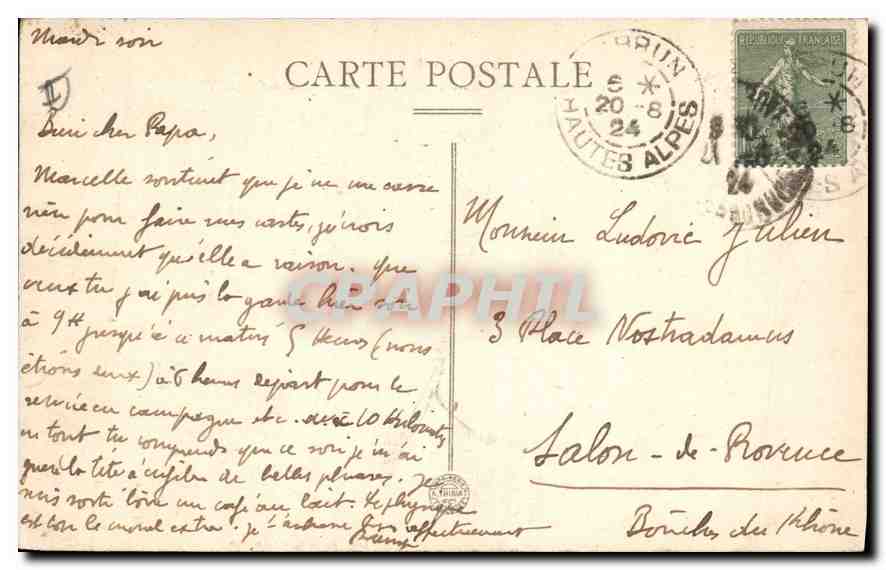 Mardi soir
CARTE POSTALE
BRUN
6 *
20-8
24
HAUTES ALPES
REPUBLIQUE FRANÇAISE
II
Bien cher Papa,
Marcelle soutient que je ne me casse
rien pour faire mes cartes, je crois
décidément qu'elle a raison. Que
veux tu j'ai pris la garde hier soir
à 9H jusqu'à ce matin 5 heures (nous
étions deux) à 6 heures départ pour le
service en campagne etc. avec 10 kilomètres
en tout tu comprends que ce soir je n'ai
guère la tête à enfiler de belles phrases. Je
suis sorti boire un café au lait. Le physique
est bon le moral extra. Je t'embrasse affectueusement
Monsieur Ludovic Julien
3 Place Nostradamus
Salon-de-Provence
Bouches du Rhône
CPAPHIL